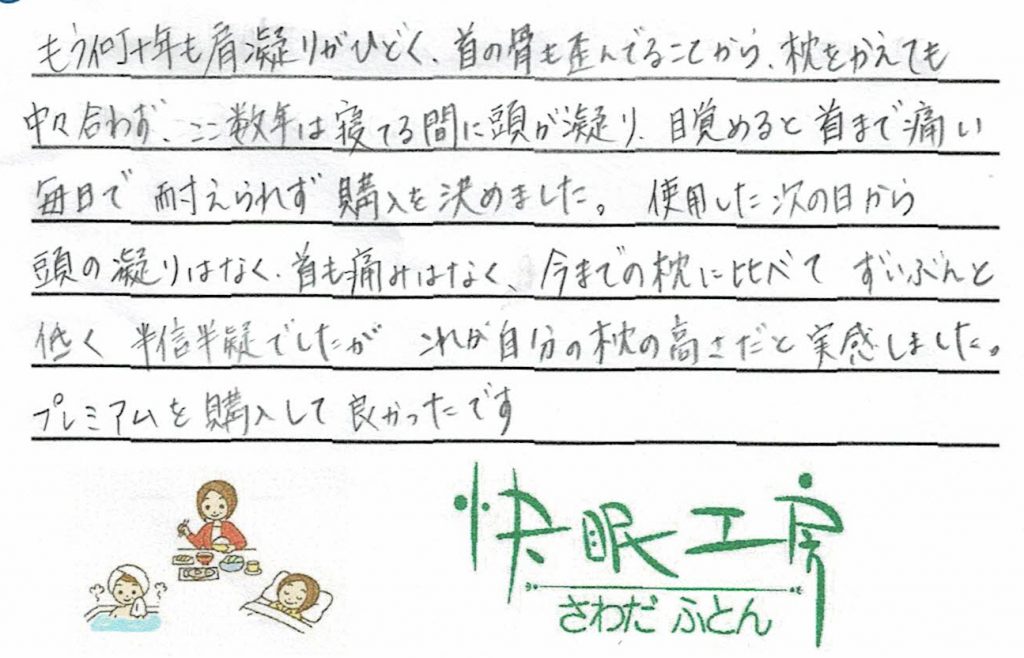 もう何十年も肩凝りがひどく、首の骨も歪んでることから、枕をかえても
中々合わず、ここ数年は寝てる間に頭が凝り、目覚めると首まで痛い
毎日で 耐えられず 購入を決めました。 使用した次の日から
頭の凝りはなく、首も痛みはなく、今までの枕に比べて ずいぶんと
低く 半信半疑でしたが これが自分の枕の高さだと実感しました。
プレミアムを購入して良かったです
快眠工房
さわだ ふとん